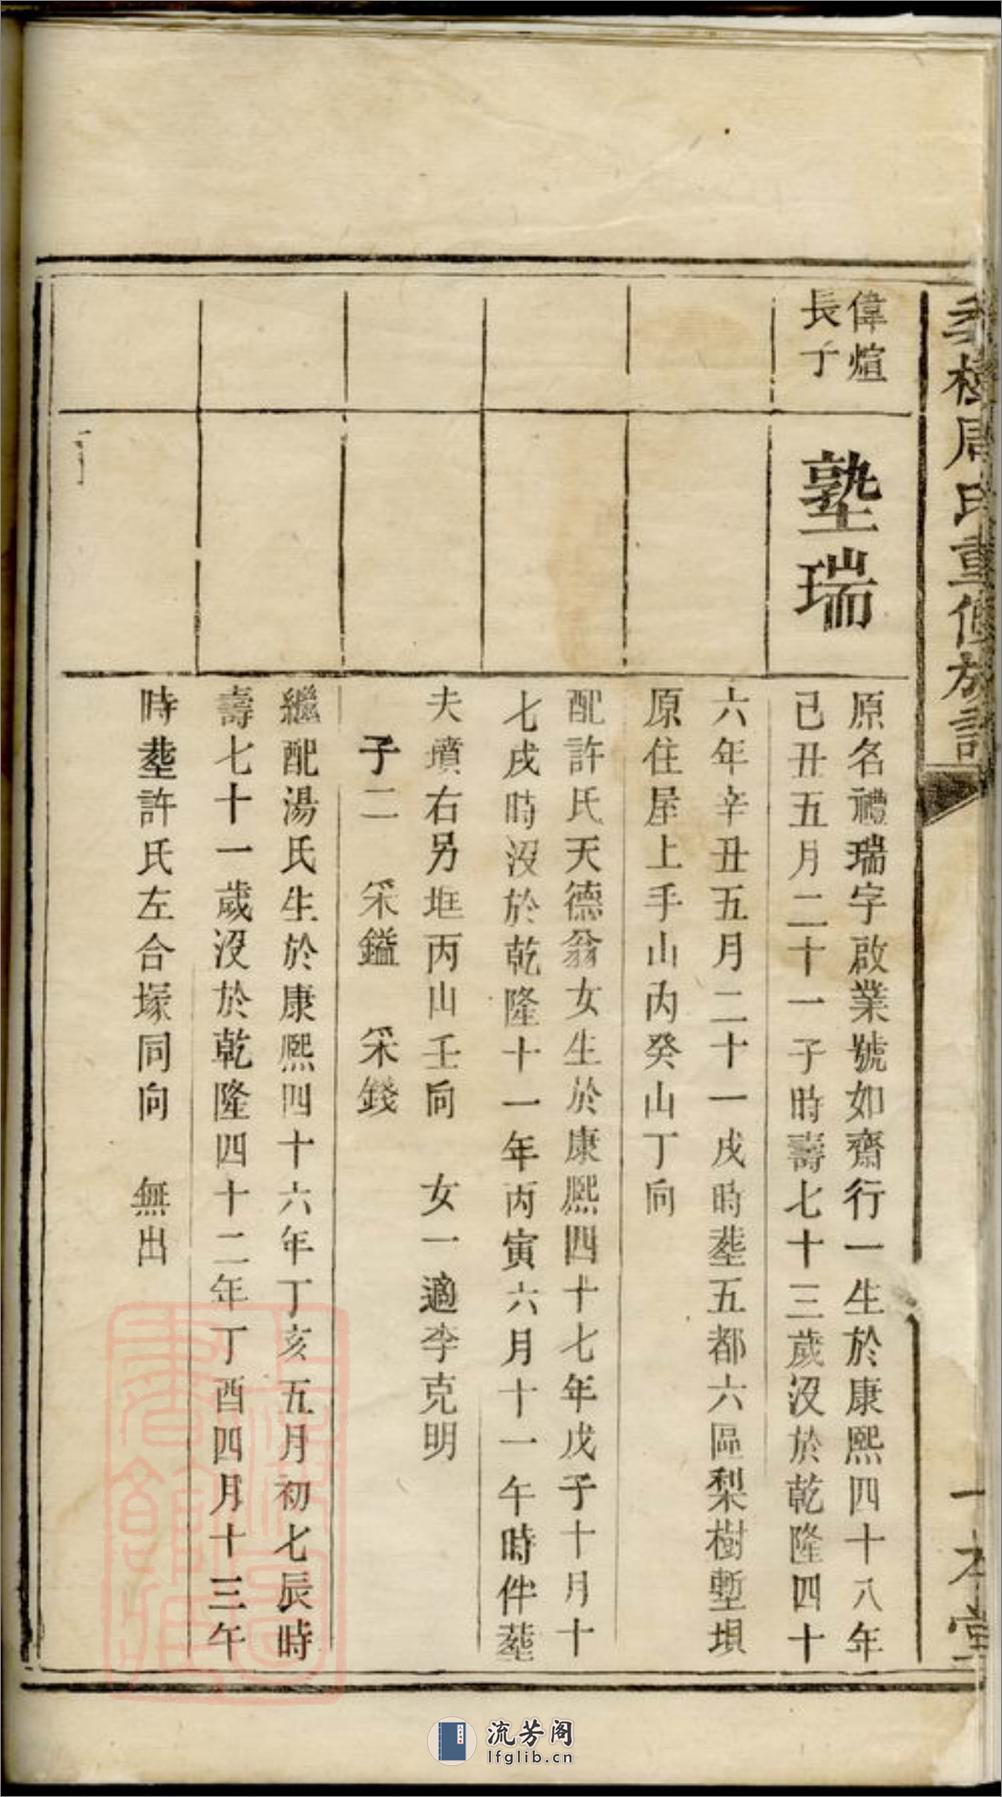 氏重修族譜
一本堂
偉煊
長子
塾瑞
原名禮瑞字啟業號如齋行一生於康熙四十八年
己丑五月二十一子時壽七十三歲沒於乾隆四十
六年辛丑五月二十一戌時塟五都六區梨樹塹垻
原住屋上手山內癸山丁向
配許氏天德翁女生於康熙四十七年戊子十月十
七戌時沒於乾隆十一年丙寅六月十一午時伴塟
夫墳右另堆丙山壬向 女一適李克明
子二 采鎰 采錢
繼配湯氏生於康熙四十六年丁亥五月初七辰時
壽七十一歲沒於乾隆四十二年丁酉四月十三午
時塟許氏左合塚同向 無出
流芳阁
lfglib.cn